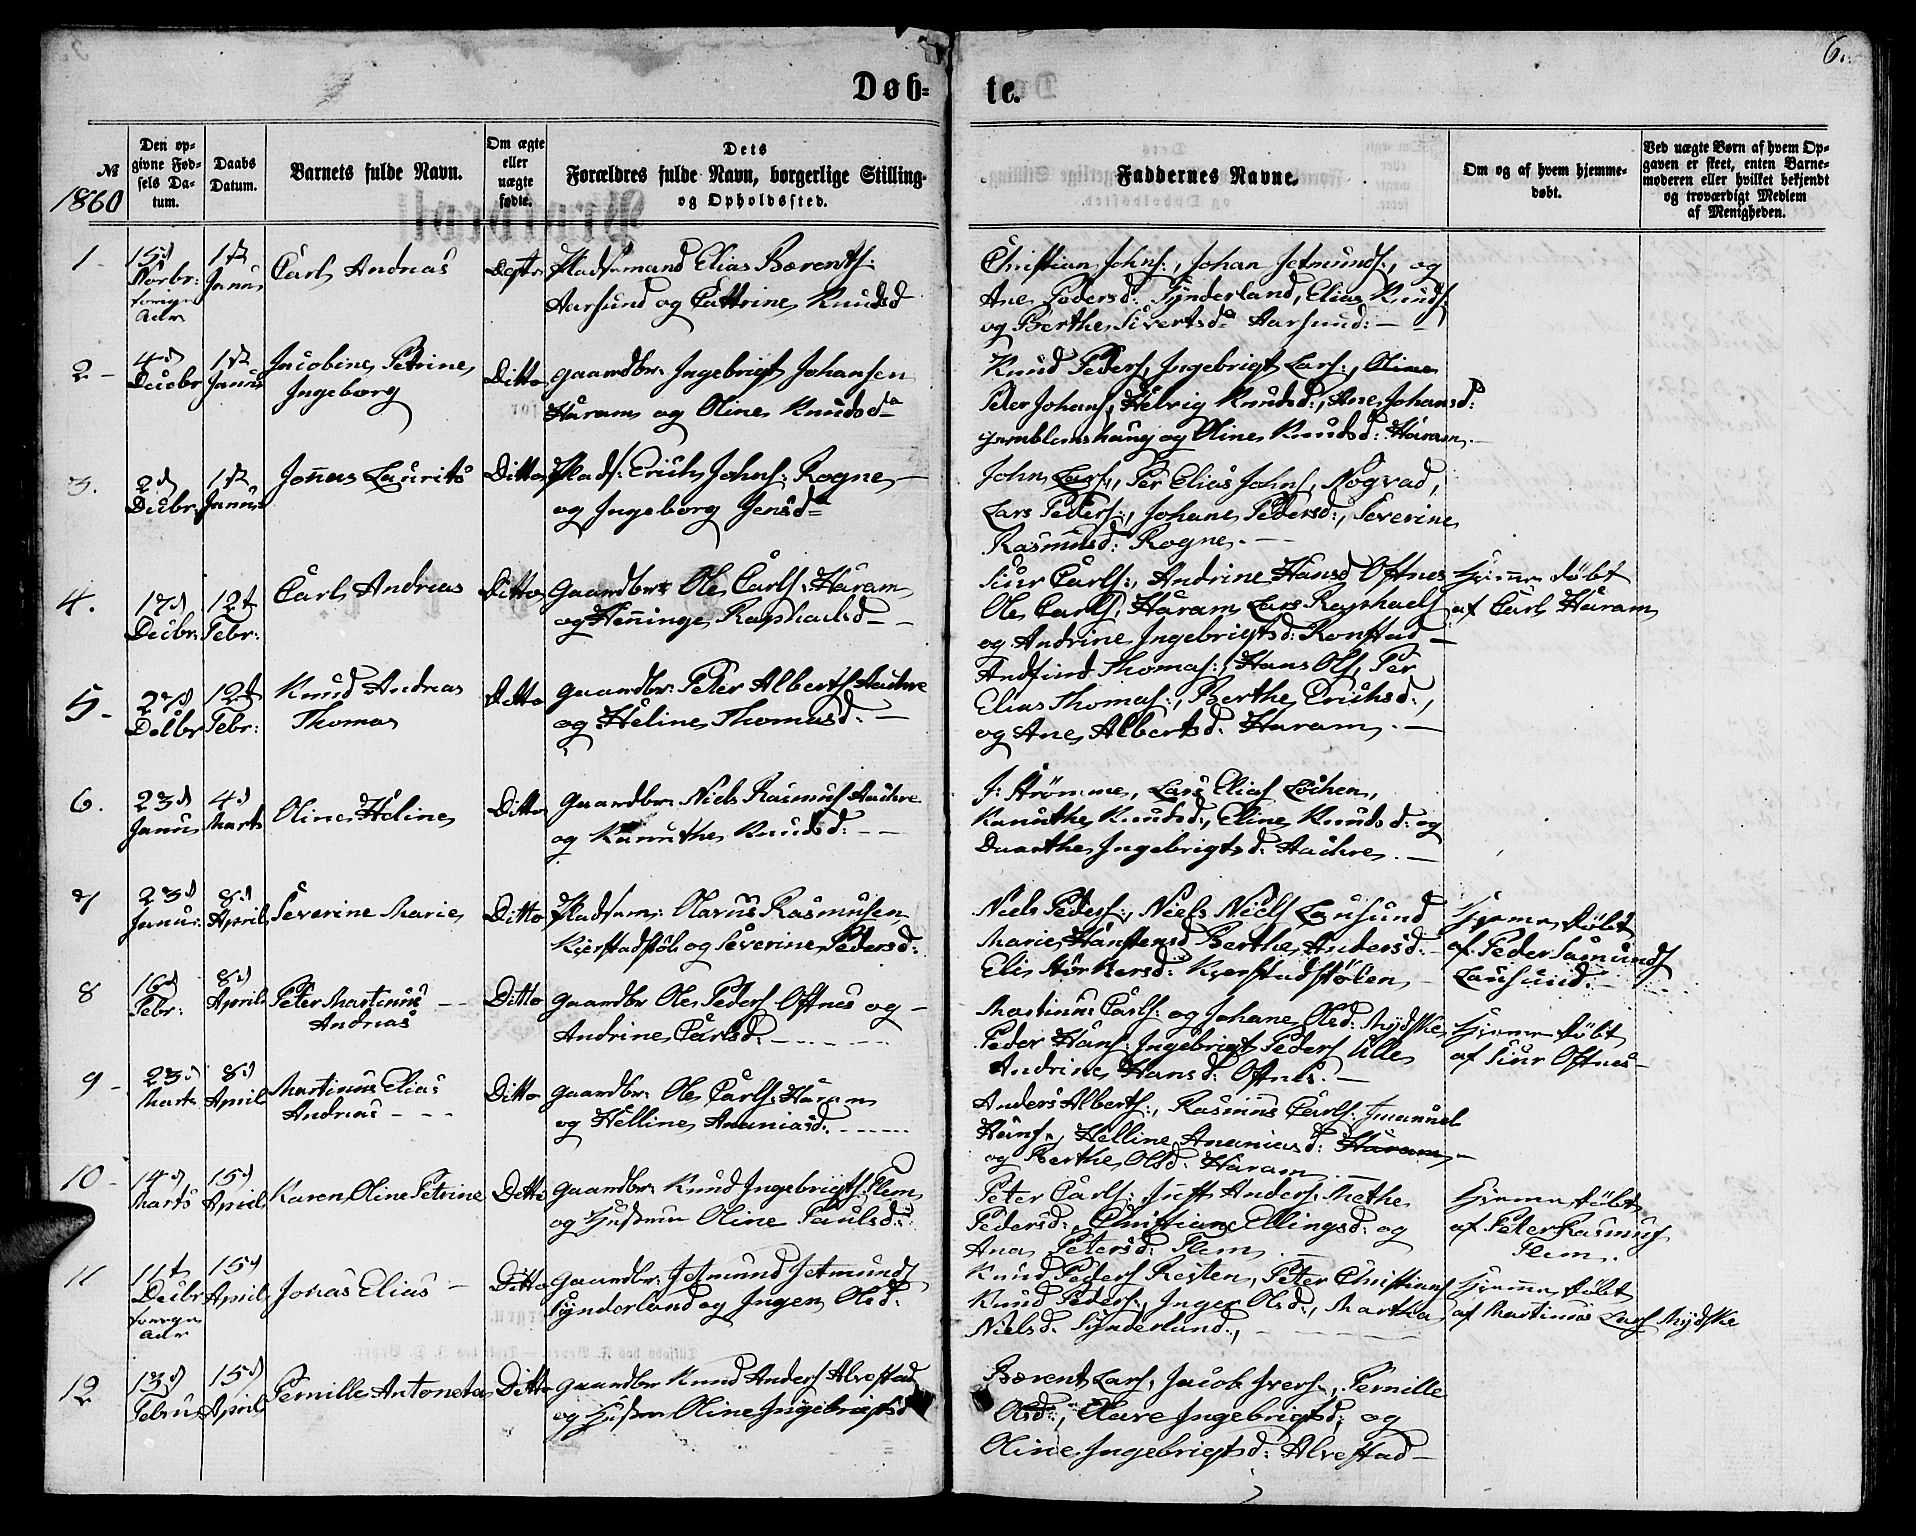 6.
Døb=
te.
№
1860
Den op-
givne Fød-
sels Da-
tum.
Daabs
Datum.
Barnets fulde Navn.
Om ægte
eller
uægte
fødte.
Dets
Forældres fulde Navn, borgerlige Stilling
og Opholdssted.
Faddernes Navne.
Om og af hvem hjemme-
døbt.
Ved uægte Børn af hvem Op-
gaven er skeet, enten Barne-
moderen eller hvilket bekjendt
og troværdigt Medlem
af Menigheden.
1
15d
Novbr:
forrige
Aar
1ste
Janu:
Carl Andreas
Ægte
Pladsmand Elias Bærents:
Aarsund og Cattrine Knudsd
Christian Johns:, Johan Jetmunds:, og
Ane Pedersd: Synderland, Elias Knuds:
og Berthe Sivertsd: Aarsund: —
2 -
4d
Decbr
1ste
Janu:
Jacobine Petrine
Ingeborg
Ditto
gaardbr: Ingebrigt Johansen
Haram og Oline Knudsd
Knud Peders, Ingebrigt Lars:, Oline
Peter Johans, Helvig Knudsd:, Ane Johansd:
og Oline Knudsd: Haram.
3.
2d
Decbr
1ste
Janu:
Jonas Laurits
Ditto
Plads: Erick Johns: Rogne —
og Ingeborg Jensd
John Lars, Per Elias Johns, Nogvad,
Lars Peders:, Johane Pedersd:, Severine
Rasmusd: Rogne. —
4.
17d
Decbr:
12t
Febr:
Carl Andreas
Ditto
Gaardbr: Ole Carls: Haram
og Henninge Raphaelsd —
Siur Carls:, Andrine Hansd Oftnes
Ole Carls, Haram Lars Raphaels
og Andrine Ingebrigtsd: Ronstad —
Hjemmedøbt
af Carl Haram
5 -
27d
Decbr
12t
Febr:
Knud Andreas
Thomas
Ditto
gaardbr: Peter Alberts Aachre
og Heline Thomasd: —
Andfind Thomas:, Hans Ols, Per
Elias Thomas:, Berthe Ericksd:,
og Ane Albertsd: Haram. —
6.
23d
Janu
4d
Marts
Oline Heline
Ditto
Gaardbr: Niels Rasmus Aachre
og Kanuthe Knudsd: —
J: Strömme, Lars Elias Løchen,
Kanuthe Knudsd:, Eline Knudsd: og
Daarthe Ingebrigtsd: Aachre. —
7
23d
Janu:
8d
April
Severine Marie
Ditto
Pladsm: Olavus Rasmusen
Kierstadstöl: og Severine Pedersd:
Niels Peders:, Niels Niels Lausund
Marie Hanstensd Berthe Andersd: —
Eli Størkersd: Kjerstadstølen —
Hjemmedøbt
af Peder Samunds
Lausund. —
8
16d
Febr:
8d
April
Peter Martinus —
Andreas
Ditto
gaardbr Ole Peders Oftnes og —
Andrine Carlsd. —
Martinus Carls: og Johane Olsd: Mydske
Peder Hans: Ingebrigt Peders Ulle
Andrine Hansd: Oftnes. —
Hjemmedøbt
af Siur Oftnes —
9 -
23d
Marts
8d
April
Martinus Elias
Andreas — —
Ditto
gaardbr: Ole Carls: Haram
og Helline Ananiasd. —
Anders Alberts:, Rasmus Carls: Imanuel
Hans:, Helline Ananiasd: Haram, —
og Berthe Olsd: Haram —
10 -
14d
Marts
15d
April
Karen Oline Petrine
Ditto
Gaardbr: Knud Ingebrigts Flem
og Hustru Oline Paulsd:
Peter Carls: Just Anders, Methe
Pedersd:, Christiane Ellingsd: og
Ana Petersd: Flem —
Hjemmedøbt
af Peter Rasmus
Flem.
11
11t
Decbr
forrige
Aar
15d
April
Jonas Elias —
Ditto
Gaardbr: Jetmund Jetmunds
Synderland og Inger Olsd:
Knud Peders Reiten, Peter Christians
Knud Peders:, Inger Olsd:, Martha
Nielsd. Synderlund., —
Hjemmedøbt
af Martinus Lars Mydske
12
13d
Febru
15d
April
Pernille Antoneta
Ditto
gaardbr Knud Anders Alvestad
og Hustru Oline Ingebrigtsd
Bærent Lars, Jacob Ivers:, Pernille
Olsd:, Olave Ingebrigtsd: og
Oline Ingebrigtsd: Alvestad —